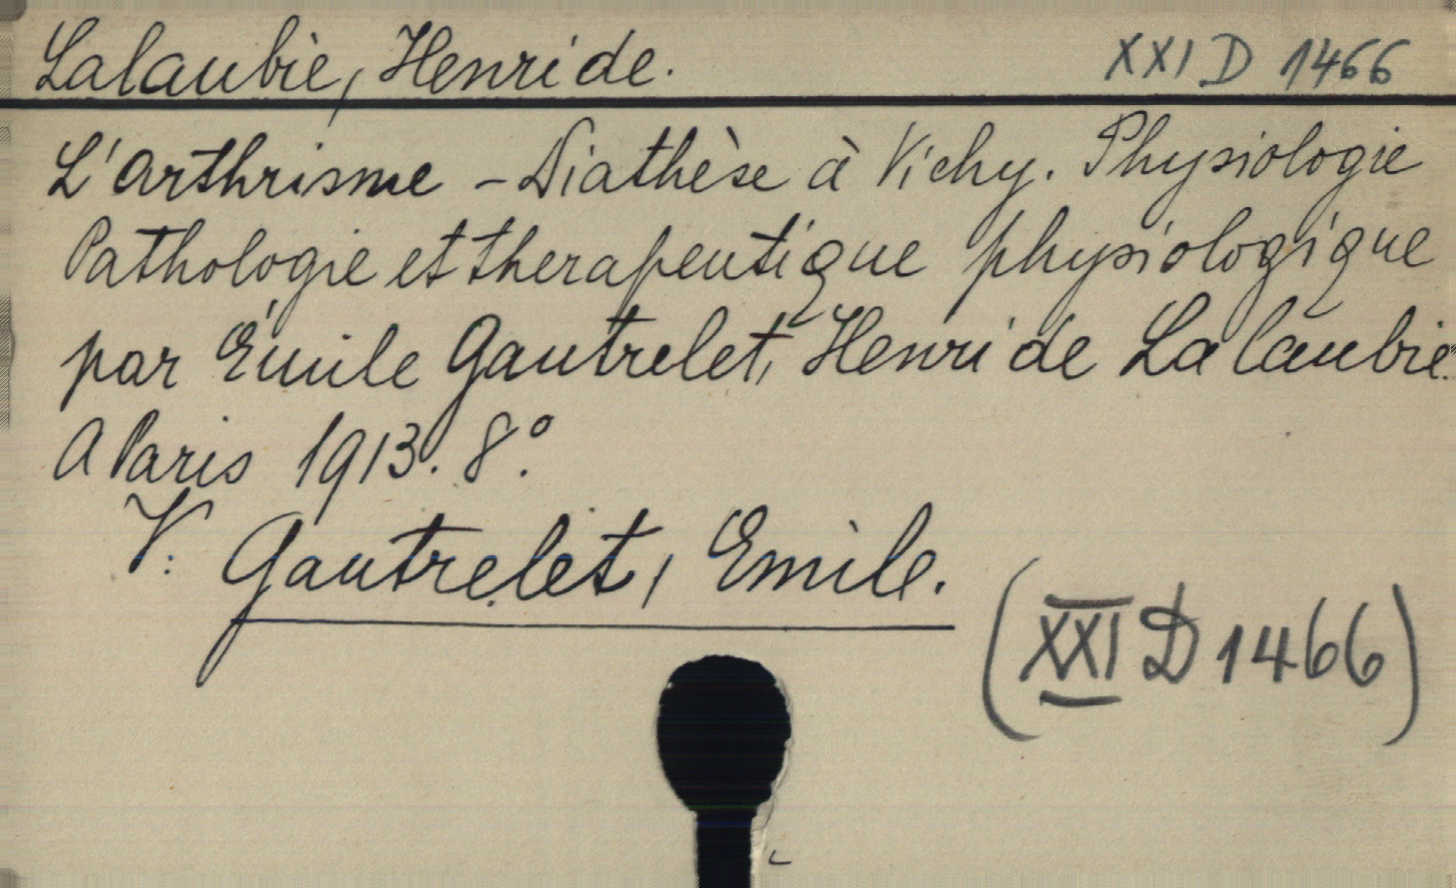 Lalaubie, Henri de. XXI D 1466
L'arthrisme - Diathèse à Vichy. Physiologie
Pathologie et therapeutique physiologique
par Émile Gautrelet, Henri de Lalaubie.
A Paris 1913. 8.º
V: Gautrelet, Emile.
(XXI D 1466)